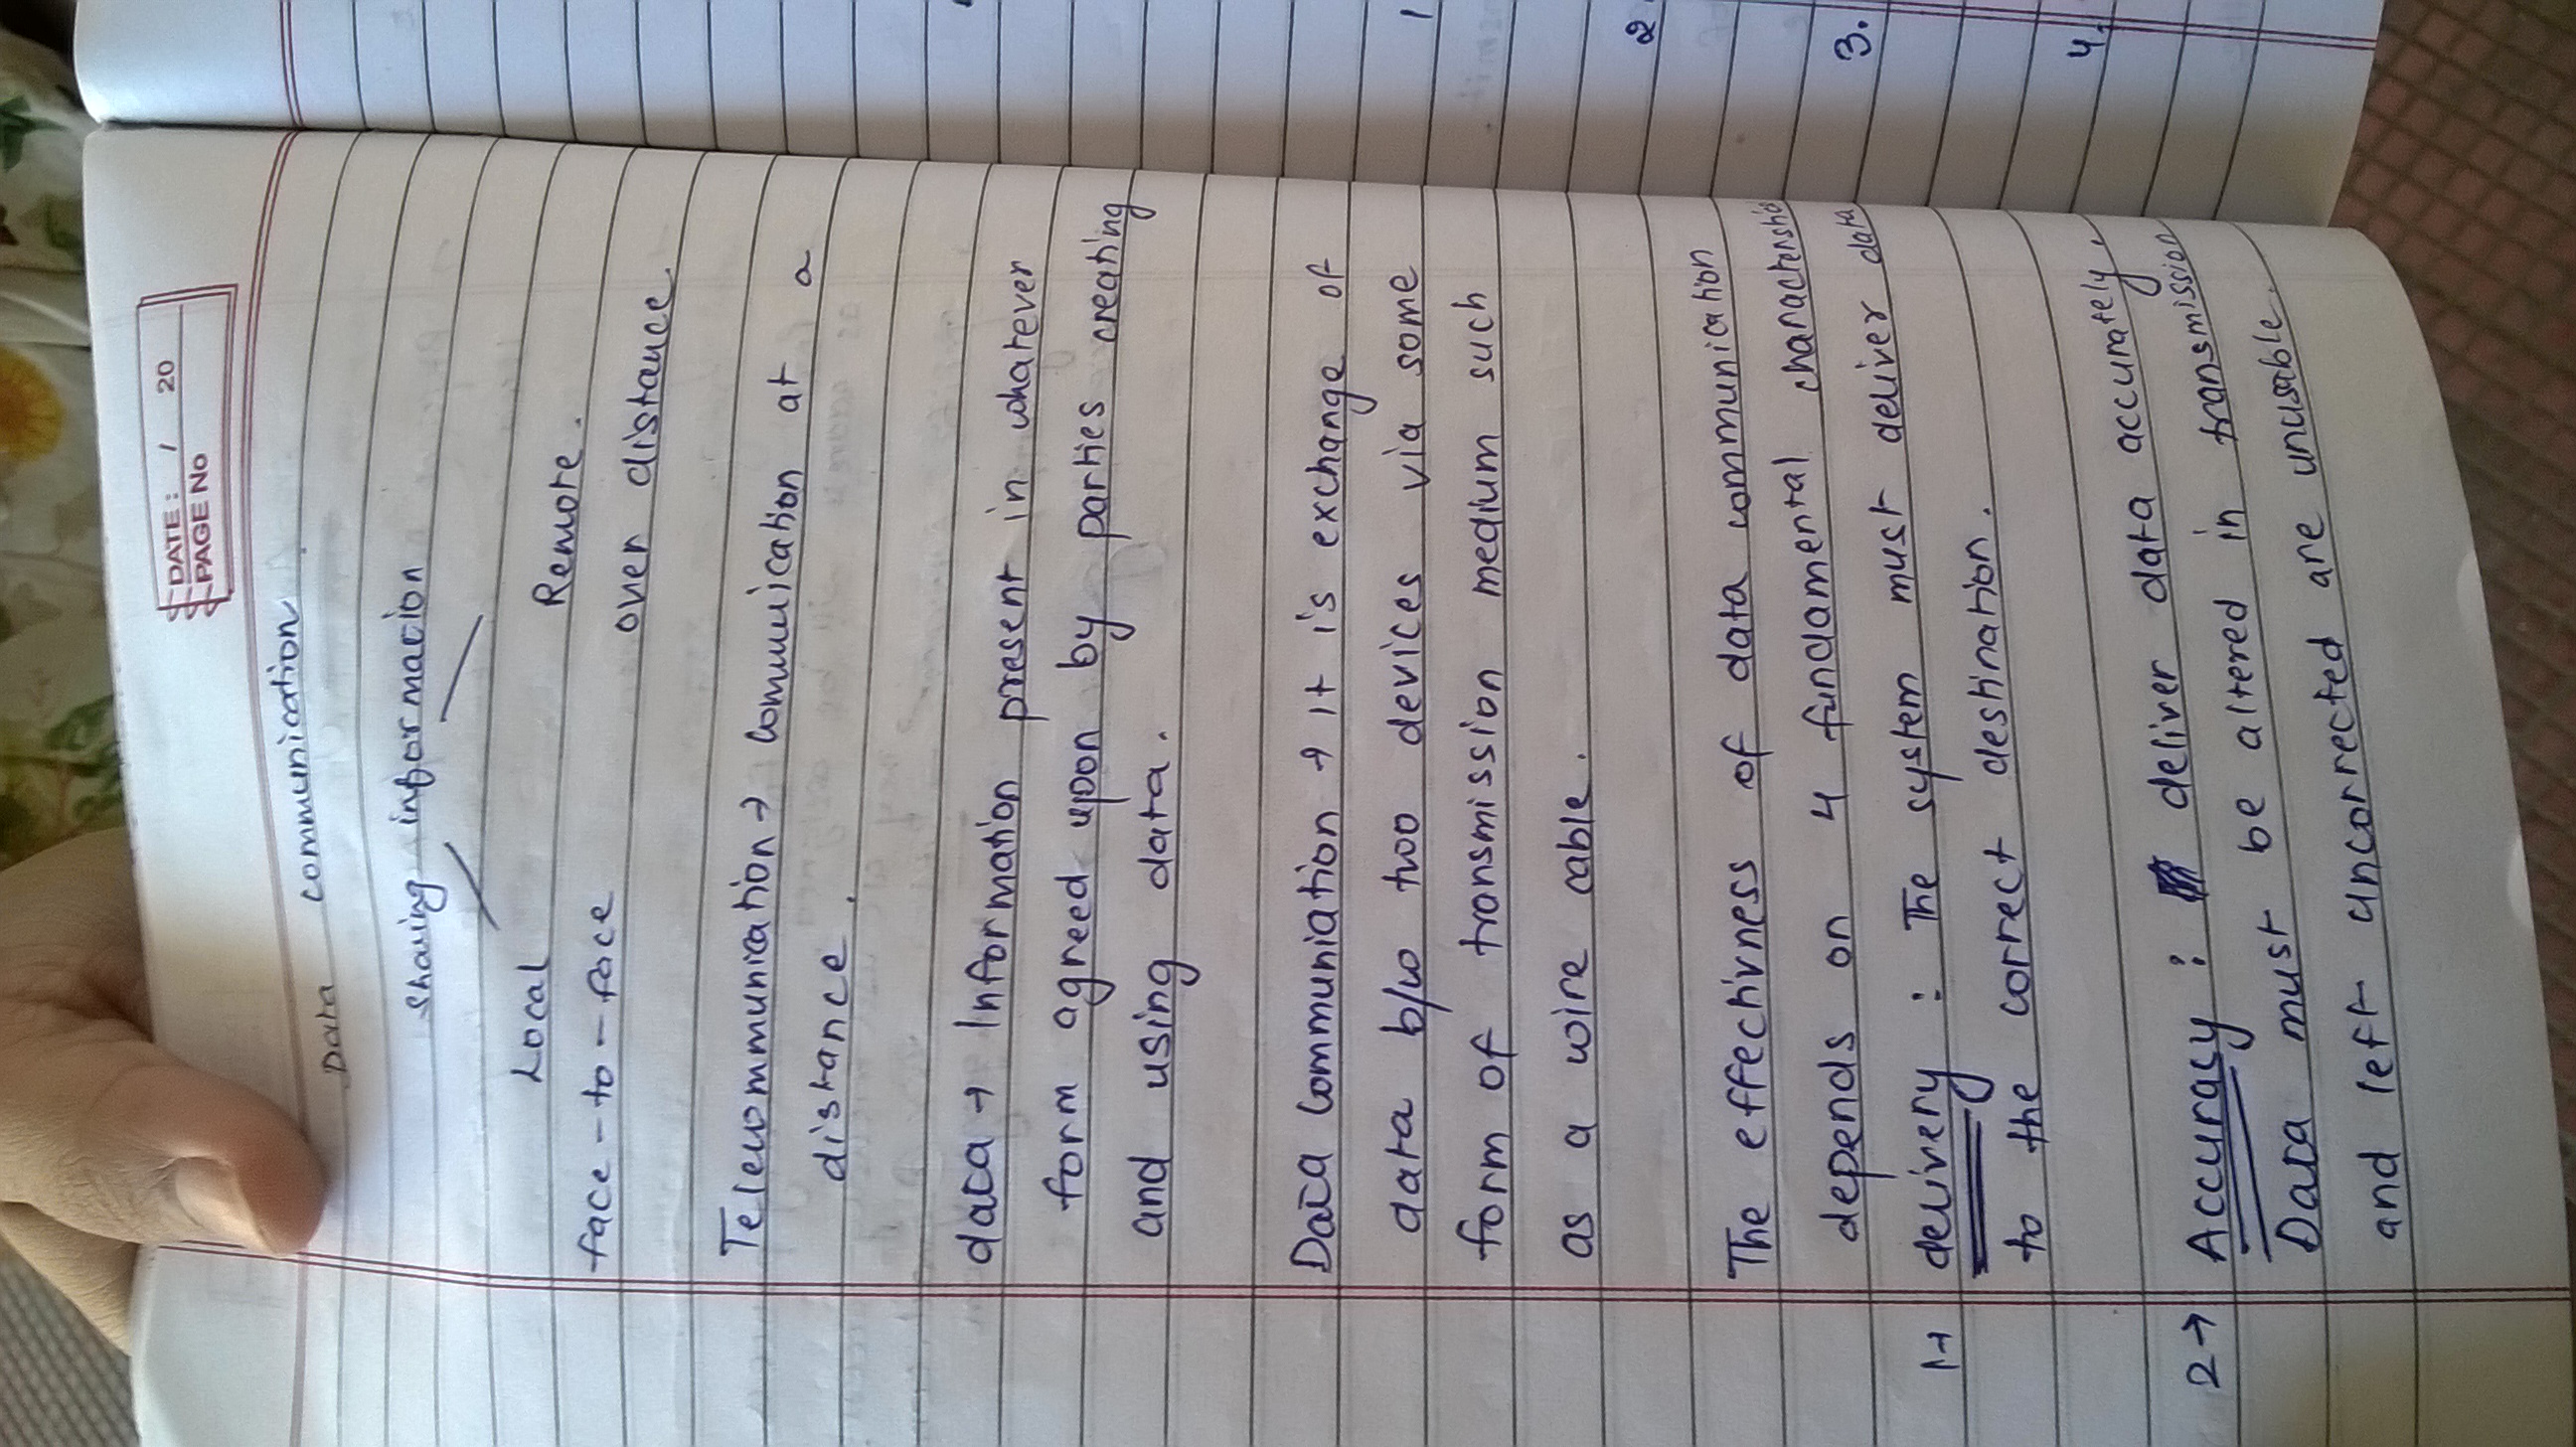 DATE: / 20
PAGE No
Data communication
sharing information
Local
Remote.
face-to-face
over distance.
Telecommunication → communication at a
distance.
data → Information present in whatever
form agreed upon by parties creating
and using data.
Data Communiation → It is exchange of
data b/w two devices via some
form of transmission medium such
as a wire cable.
The effectivness of data communication
depends on 4 fundamental characteristics
1→ delivery : The system must deliver data
to the correct destination.
2→ Accuracy : deliver data accurately.
Data must be altered in transmission
and left uncorrected are unusable.
1
2
3.
4.